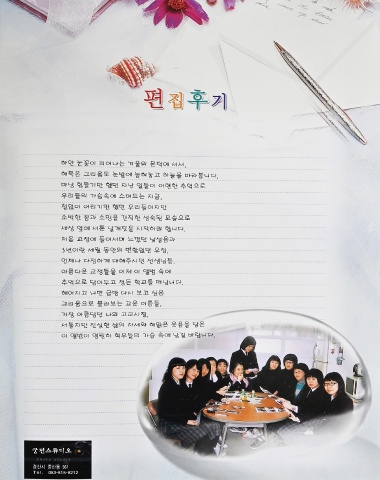 편집후기
하얀 눈꽃이 피어나는 겨울의 문턱에 서서,
해묵은 그리움도 눈발에 능해놓고 하늘을 바라봅니다.
마냥 힘들기만 했던 지난 일들이 어엿한 추억으로
우리들의 가슴속에 스며드는 지금,
철없이 어리기만 했던 우리들이지만
소박한 꿈과 소망을 간직한 성숙된 모습으로
세상 앞에 서툰 날개짓을 시작하려 합니다.
처음 교정에 들어서며 느꼈던 낯설음과
3년이란 세월 동안의 변함없던 우정,
언제나 다정하게 대해주시던 선생님들,
아름다운 교정들을 이제 이 앨범 속에
추억으로 담아두고 정든 학교를 떠납니다.
헤어지고 나면 금방 다시 보고 싶을
그리움으로 불러보는 고운 이름들,
가장 아름답던 나의 고교시절,
서툴지만 진실한 삶의 자세와 해맑은 웃음을 담은
이 앨범이 영원히 학우들의 가슴 속에 남길 바랍니다.